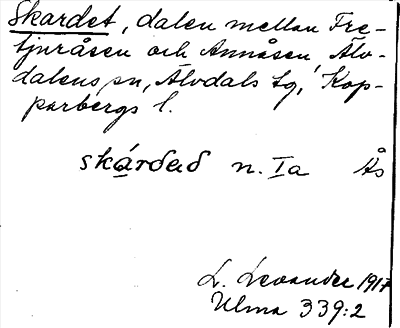 Skardet, dalen mellan Fre-
tjuråsen och Annåsen, Älv-
dalens sn, Älvdals tg, Kop-
parbergs l.
skárdað n. Ia Ås
L. Levander 1917
Ulma 339:2